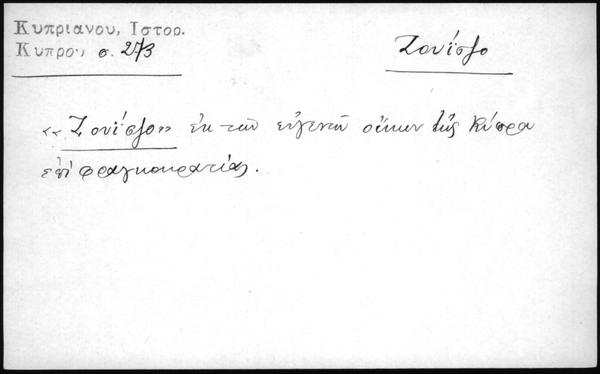 Κυπριανου, Ιστορ.
Κυπρου σ. 273
Ζονίσζο
«Ζονίσζο» ἐκ τῶν εὐγενῶν οἴκων τῆς Κύπρου
ἐπί φραγκοκρατίας.